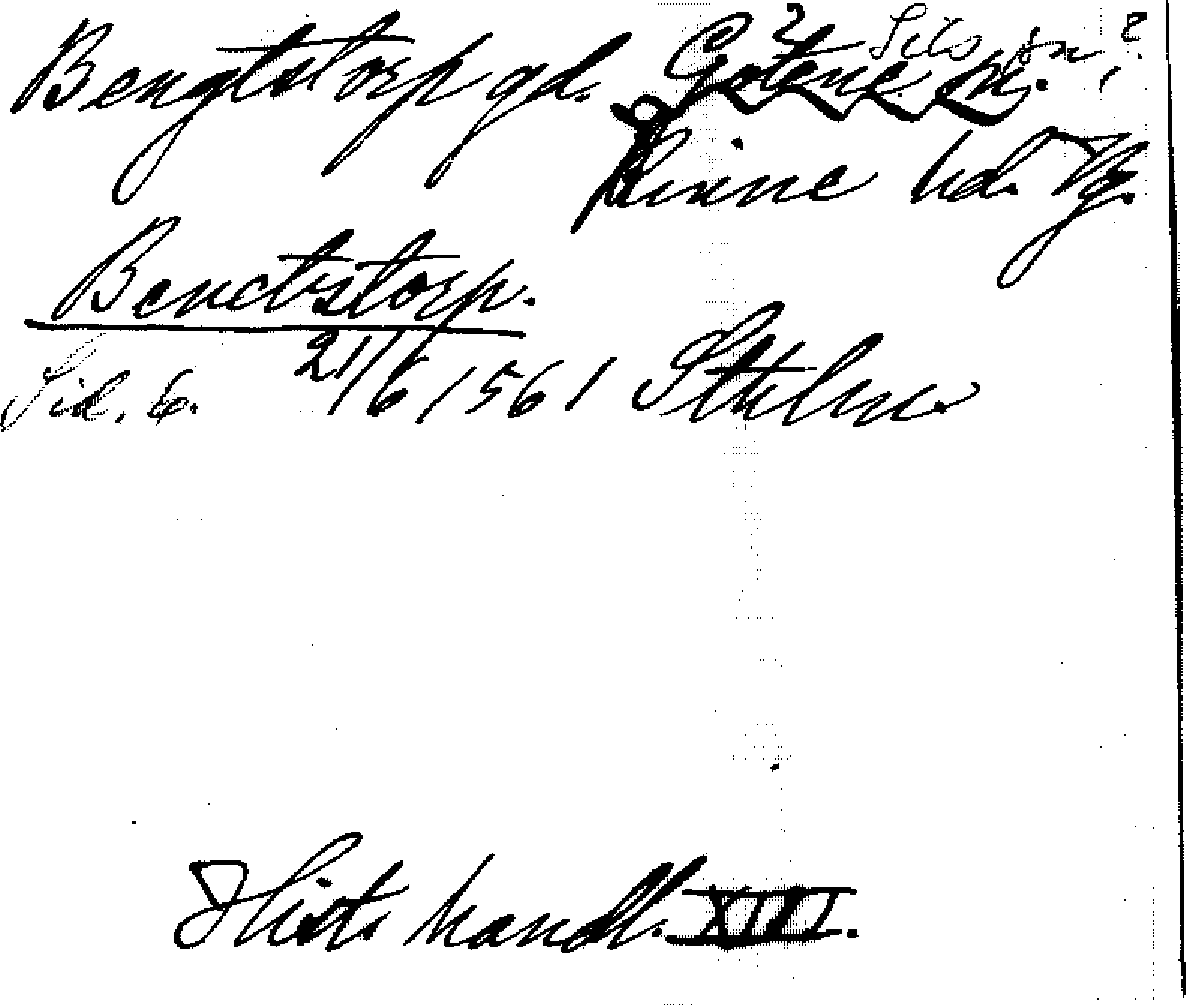 Bengtstorp gd. Götene sn. ? Sils sn, ?
Kinne hd. Vg.
Benctstorp.
Sid. 6. 21/6 1561 Sthlm.
Hist. handl. XIII.